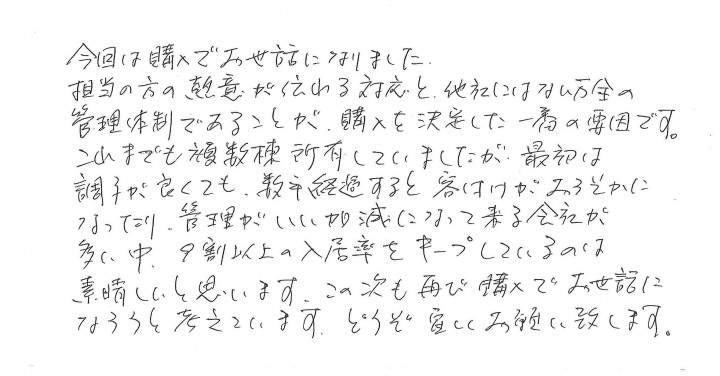 今回は購入でお世話になりました.
担当の方の熱意が伝わる対応と、他社にはない万全の
管理体制であることが、購入を決定した一番の要因です。
これまでも複数棟所有していましたが、最初は
調子が良くても、数年経過すると客付けがおろそかに
なったり、管理がいい加減になって来る会社が
多い中、9割以上の入居率をキープしているのは
素晴しいと思います。この次も再び購入でお世話に
なろうと考えています。どうぞ宜しくお願い致します。